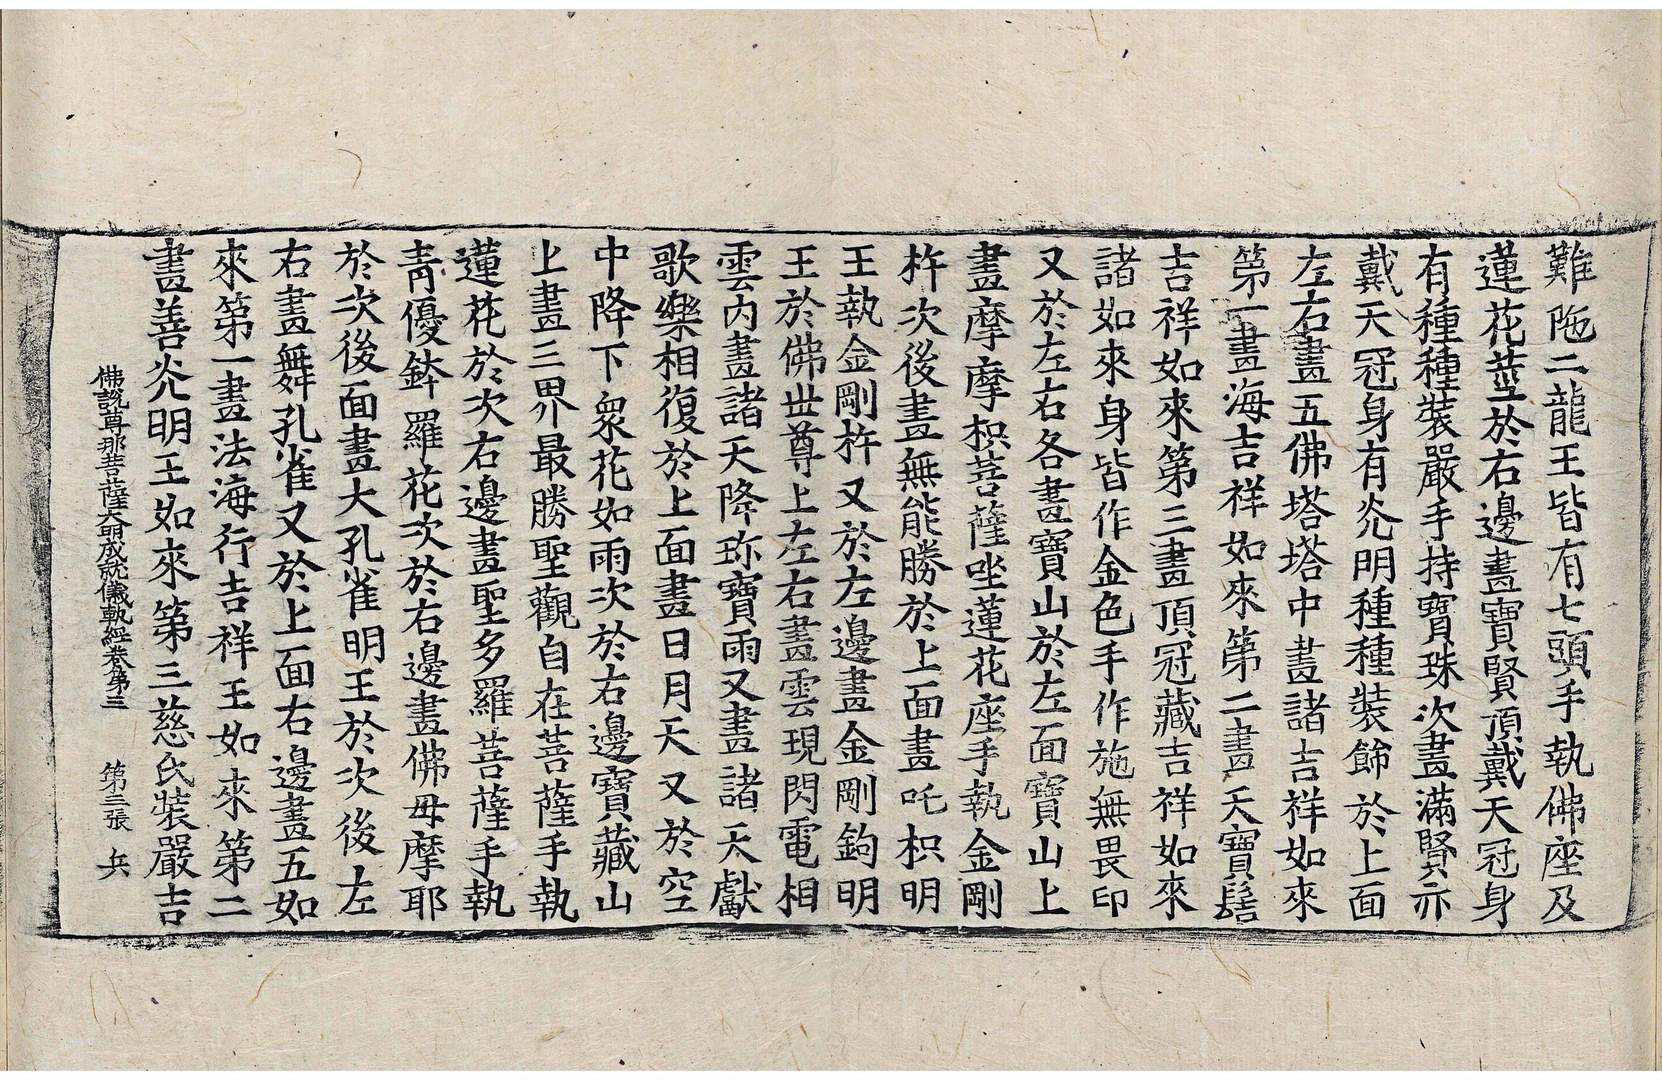 難陁二龍王皆有七頭手執佛座及
蓮花莖於右邊畫寶賢頂戴天冠身
有種種裝嚴手持寶珠次畫滿賢亦
戴天冠身有光明種種裝飾於上面
左右畫五佛塔塔中畫諸吉祥如來
第一畫海吉祥如來第二畫天寶髻
吉祥如來第三畫頂冠藏吉祥如來
諸如來身皆作金色手作施無畏印
又於左右各畫寶山於左面寶山上
畫摩摩枳菩薩坐蓮花座手執金剛
杵次後畫無能勝於上面畫吒枳明
王執金剛杵又於左邊畫金剛鉤明
王於佛世尊上左右畫雲現閃電相
雲內畫諸天降珎寶雨又畫諸天獻
歌樂相復於上面畫日月天又於空
中降下衆花如雨次於右邊寶藏山
上畫三界最勝聖觀自在菩薩手執
蓮花於次右邊畫聖多羅菩薩手執
青優鉢羅花次於右邊畫佛母摩耶
於次後面畫大孔雀明王於次後左
右畫舞孔雀又於上面右邊畫五如
來第一畫法海行吉祥王如來第二
畫善光明王如來第三慈氏裝嚴吉
佛說尊那菩薩大明成就儀軌經卷第三 第三張 兵